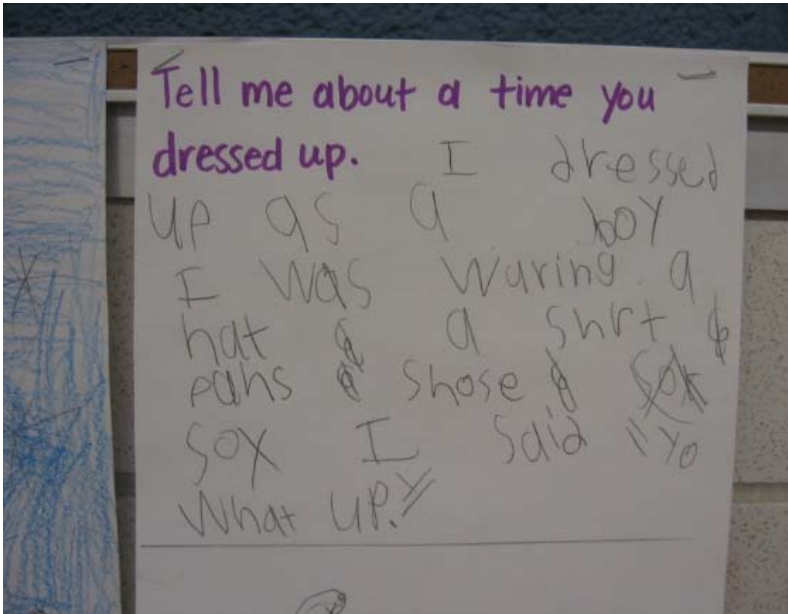 Tell me about a time you
dressed up. I dressed
up as a boy
I was waring a
hat & a shrt &
pans & shose & sox
sox I said "yo
What up."